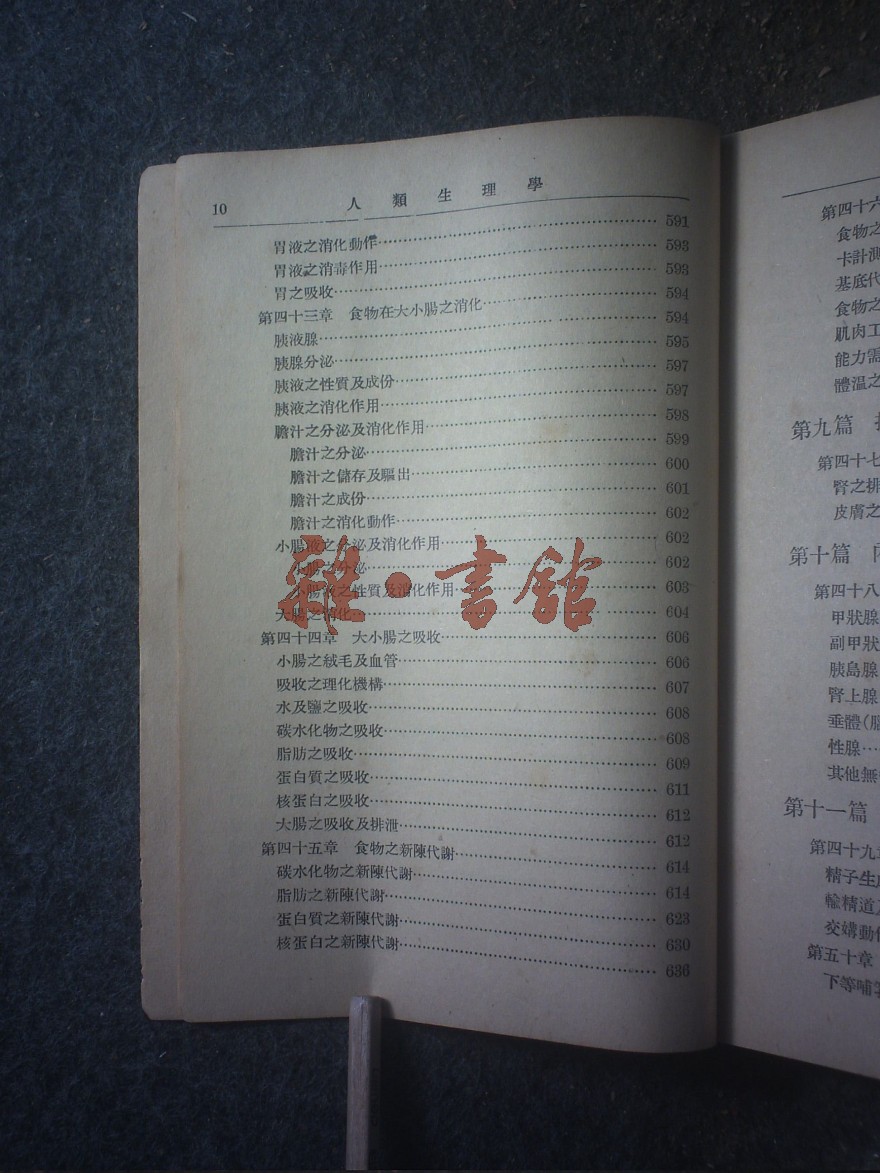 10 人類生理學
胃液之消化動作……591
胃液之消毒作用……593
胃之吸收……593
第四十三章 食物在大小腸之消化……594
胰液腺……594
胰腺分泌……595
胰液之性質及成份……597
胰液之消化作用……597
膽汁之分泌及消化作用……598
膽汁之分泌……599
膽汁之儲存及驅出……600
膽汁之成份……601
膽汁之消化動作……602
小腸液之分泌及消化作用……602
小腸之分泌……602
小腸液之性質及消化作用……603
大腸之消化……604
第四十四章 大小腸之吸收……606
小腸之絨毛及血管……606
吸收之理化機構……607
水及鹽之吸收……608
碳水化物之吸收……608
脂肪之吸收……609
蛋白質之吸收……611
核蛋白之吸收……612
大腸之吸收及排泄……612
第四十五章 食物之新陳代謝……614
碳水化物之新陳代謝……614
脂肪之新陳代謝……623
蛋白質之新陳代謝……630
核蛋白之新陳代謝……636
雜·書館
第四十六
食物之
卡計測
基底代
食物之
肌肉工
能力需
體溫之
第九篇
第四十七
腎之排
皮膚之
第十篇
第四十八
甲狀腺
副甲狀
胰島腺
腎上腺
垂體(腦
性腺……
其他無
第十一篇
第四十九章
精子生
輸精道
交媾動作
第五十章
下等哺